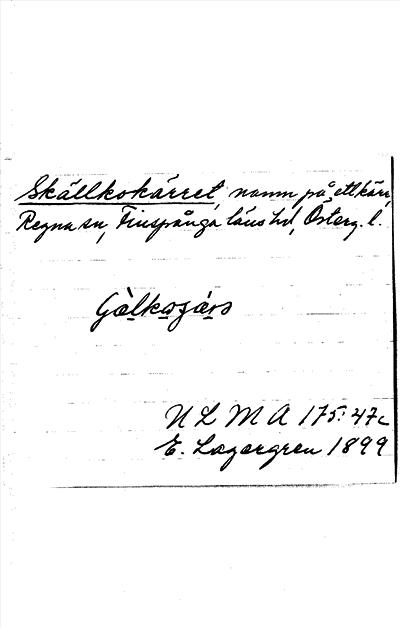 Skällkokärret, namn på ett kärr,
Regna sn, Finspånga läns hd, Österg. l.
ULMA 175:47c
E. Lagergren 1899